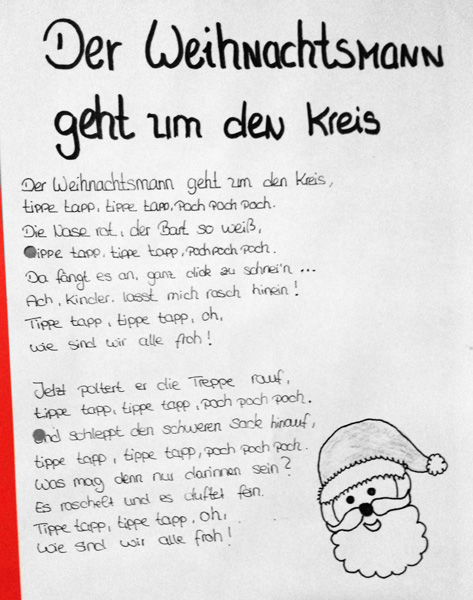 Der Weihnachtsmann
geht um den Kreis
Der Weihnachtsmann geht um den Kreis,
tippe tapp, tippe tapp, poch poch poch.
Die Nase rot, der Bart so weiß,
tippe tapp, tippe tapp, poch poch poch.
Da fängt es an, ganz dick zu schnei'n ...
Ach, Kinder, lasst mich rasch hinein!
Tippe tapp, tippe tapp, oh,
wie sind wir alle froh!
Jetzt poltert er die Treppe rauf,
tippe tapp, tippe tapp, poch poch poch.
Und schleppt den schweren Sack hinauf,
tippe tapp, tippe tapp, poch poch poch.
Was mag denn nur darinnen sein?
Es raschelt und es duftet fein.
Tippe tapp, tippe tapp, oh,
wie sind wir alle froh!